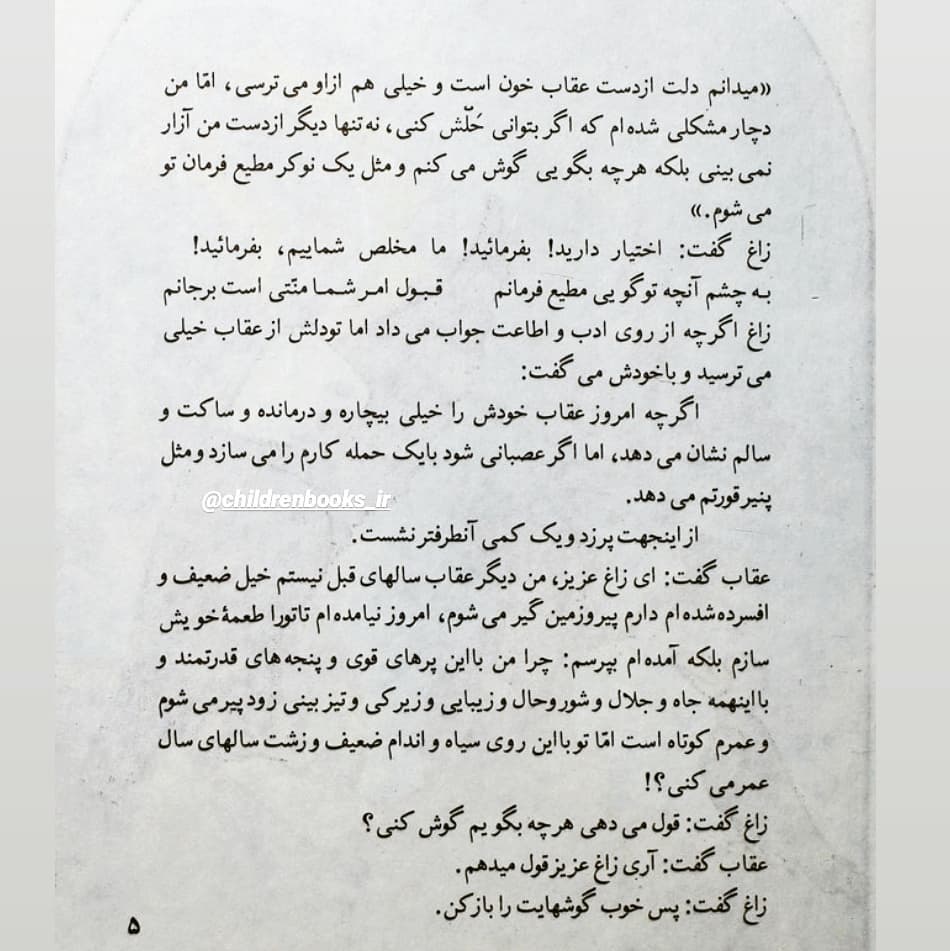 «میدانم دلت ازدست عقاب خون است و خیلی هم ازاو می ترسی، امّا من
دچار مشکلی شده ام که اگر بتوانی حَلّش کنی، نه تنها دیگر ازدست من آزار
نمی بینی بلکه هرچه بگویی گوش می کنم و مثل یک نوکر مطیع فرمان تو
می شوم.»
زاغ گفت: اختیار دارید! بفرمائید! ما مخلص شماییم، بفرمائید!
به چشم آنچه توگویی مطیع فرمانم قبول امر شما منّتی است برجانم
زاغ اگرچه از روی ادب و اطاعت جواب می داد اما تودلش از عقاب خیلی
می ترسید و باخودش می گفت:
اگرچه امروز عقاب خودش را خیلی بیچاره و درمانده و ساکت و
سالم نشان می دهد، اما اگر عصبانی شود بایک حمله کارم را می سازد و مثل
پنیر قورتم می دهد.
@childrenbooks_ir
از اینجهت پرزد و یک کمی آنطرفتر نشست.
عقاب گفت: ای زاغ عزیز، من دیگر عقاب سالهای قبل نیستم خیل ضعیف و
افسرده شده ام دارم پیروزمین گیر می شوم، امروز نیامده ام تاتورا طعمهٔ خویش
سازم بلکه آمده ام بپرسم: چرا من بااین پرهای قوی و پنجه های قدرتمند و
بااینهمه جاه و جلال و شوروحال و زیبایی و زیرکی و تیزبینی زود پیر می شوم
و عمرم کوتاه است امّا تو بااین روی سیاه و اندام ضعیف و زشت سالهای سال
عمر می کنی؟!
زاغ گفت: قول می دهی هرچه بگویم گوش کنی؟
عقاب گفت: آری زاغ عزیز قول میدهم.
زاغ گفت: پس خوب گوشهایت را بازکن.
۵